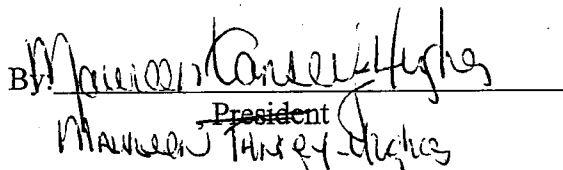 By: Maureen Tansey-Hughes
, President
Maureen Tansey-Hughes